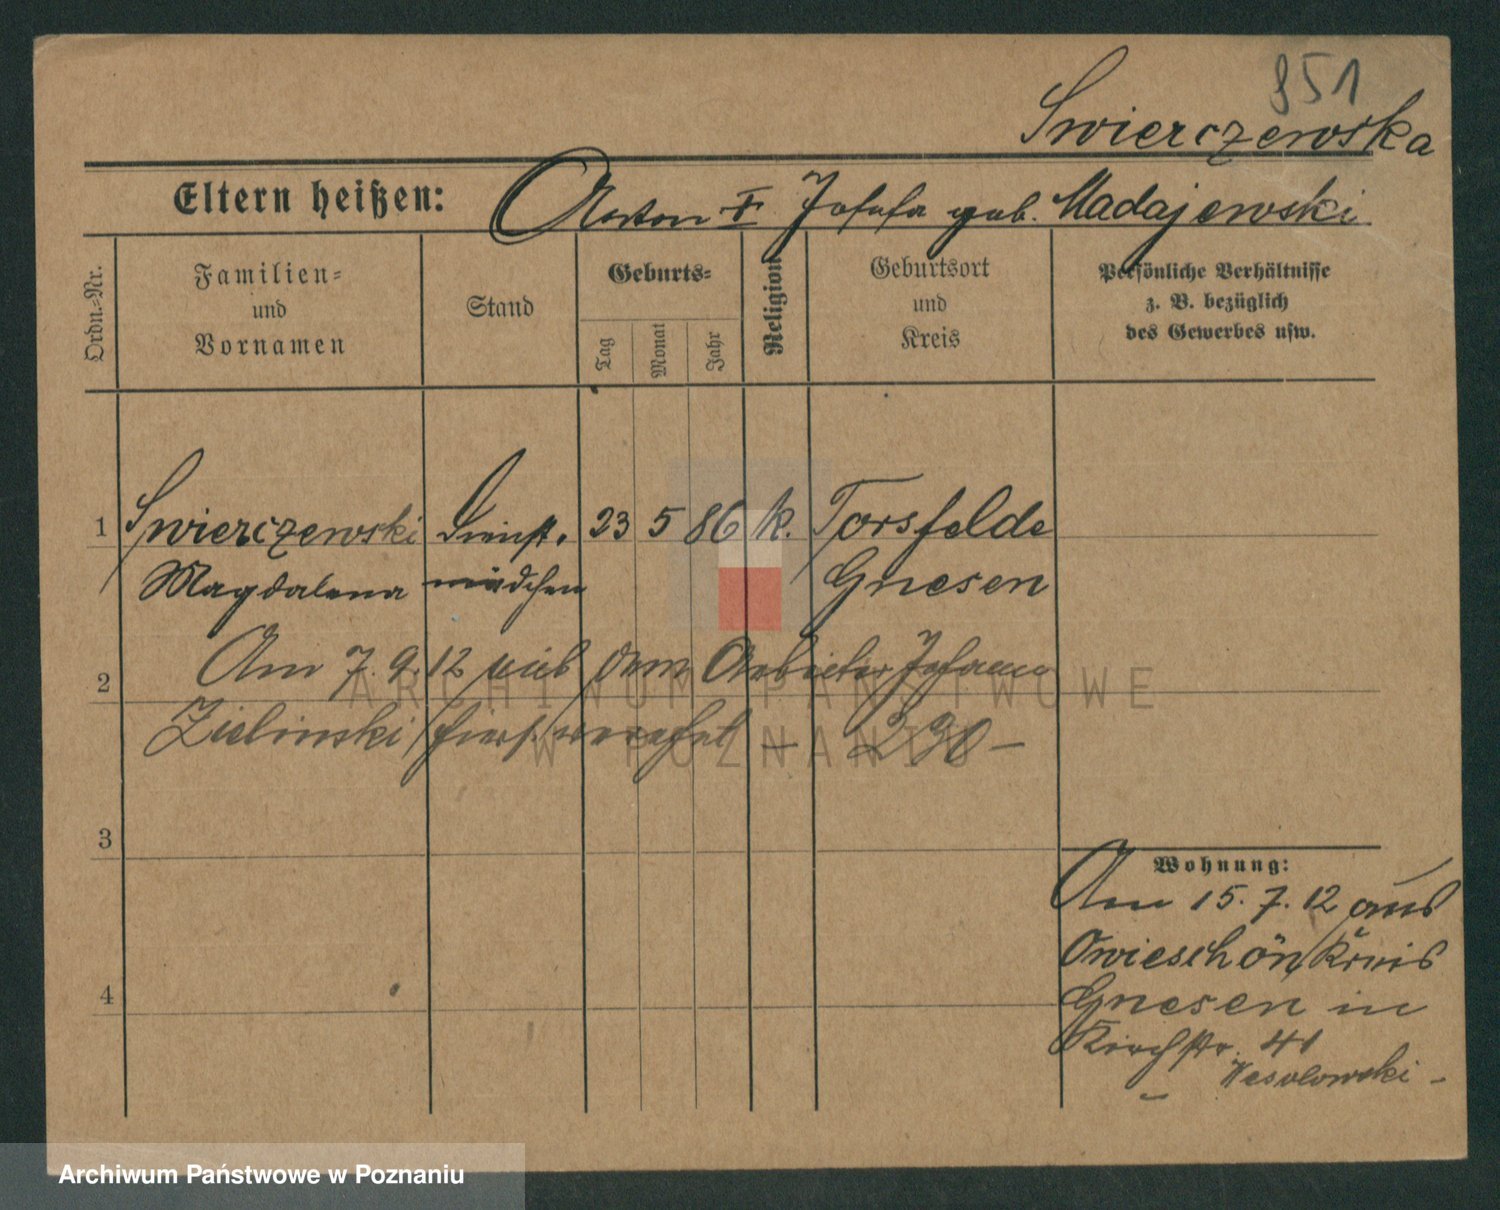 851
Swierczewska
Eltern heißen: Anton † Josefa geb. Madajewski
Ordn.-Nr.
Familien-
und
Vornamen
Stand
Geburts-
Tag
Monat
Jahr
Religion
Geburtsort
und
Kreis
Persönliche Verhältnisse
z. B. bezüglich
des Gewerbes usw.
1 Swierczewski Dienst. 23 5 86 k. Torsfelde
Magdalena mädchen Gnesen
2 Am 7. 9. 12 mit dem Arbeiter Johann
Zielinski hier verehel. — 230 —
3
4
Wohnung:
Am 15. 7. 12 aus
Owieschön, Kreis
Gnesen in
Kirchstr. 41
Wesolowski -
ARCHIWUM PAŃSTWOWE
W POZNANIU
Archiwum Państwowe w Poznaniu